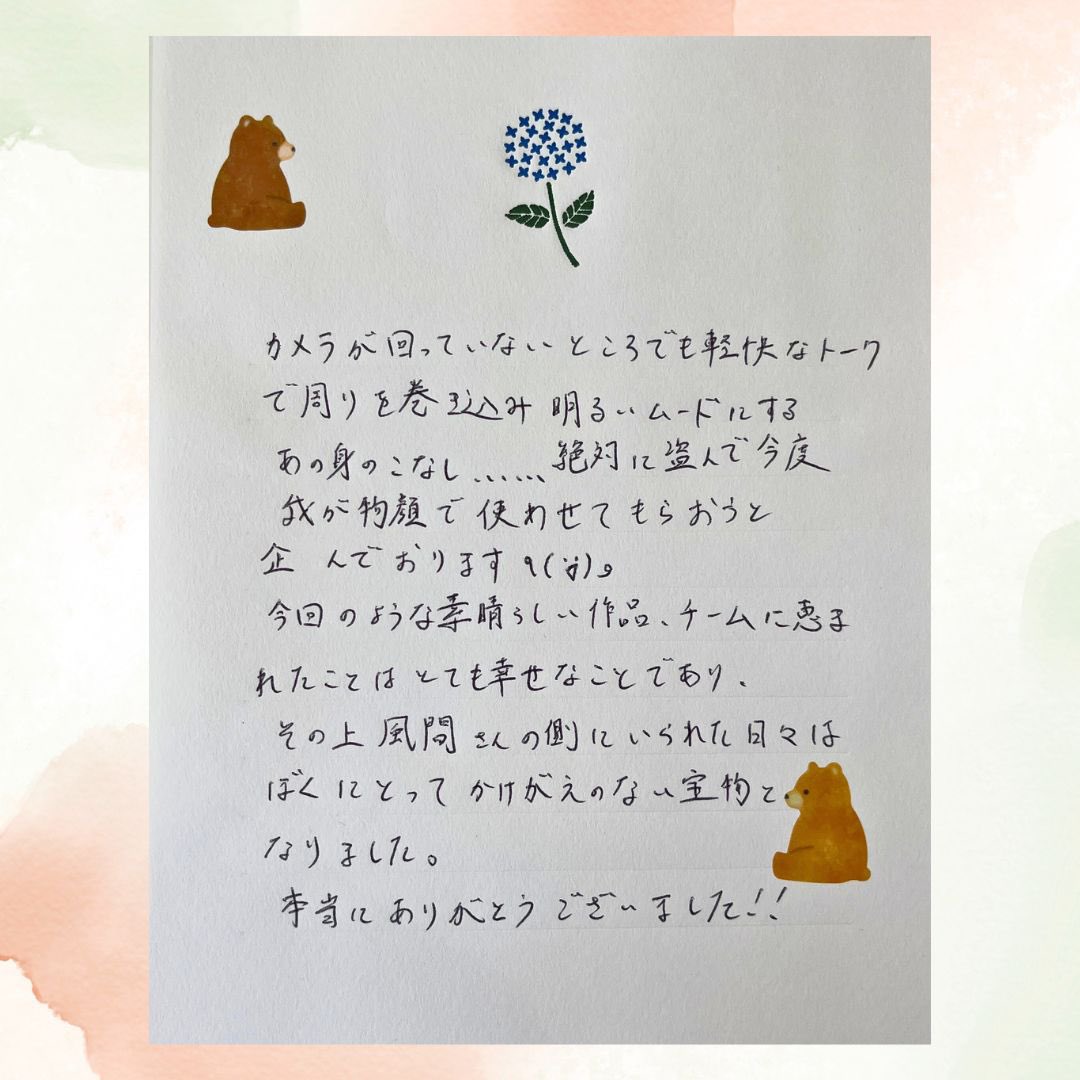 カメラが回っていないところでも軽快なトーク
で周りを巻き込み明るいムードにする
あの身のこなし......絶対に盗んで今度
我が物顔で使わせてもらおうと
企んでおります
今回のような素晴らしい作品、チームに恵ま
れたことはとても幸せなことであり、
その上風間さんの側にいられた日々は
ぼくにとってかけがえのない宝物と
なりました。
本当にありがとうございました!!